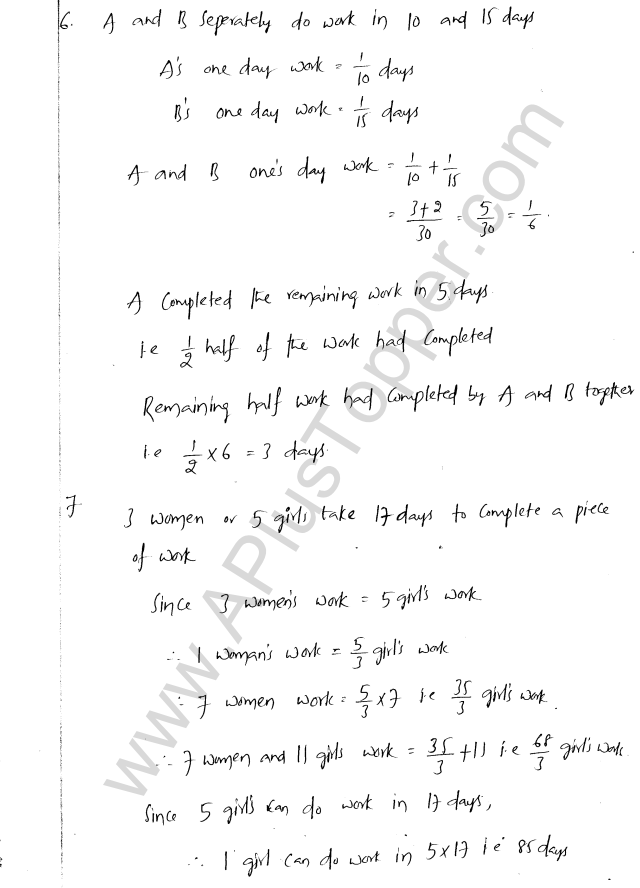 6. A and B Seperately do work in 10 and 15 days
A's one day work = 1/10 days
B's one day work = 1/15 days
A and B one's day work = 1/10 + 1/15
= 3+2/30 = 5/30 = 1/6.
A Completed the remaining work in 5 days.
i.e 1/2 half of the work had Completed
Remaining half work had Completed by A and B together
i.e 1/2 × 6 = 3 days.
7 3 women or 5 girls take 17 days to Complete a piece
of work
Since 3 women's work = 5 girl's work
∴ 1 woman's work = 5/3 girl's work
∴ 7 women work = 5/3 × 7 i.e 35/3 girl's work.
∴ 7 women and 11 girls work = 35/3 + 11 i.e 68/3 girl's work.
Since 5 girl's can do work in 17 days,
∴ 1 girl can do work in 5×17 i.e 85 days
www.APlusTopper.com